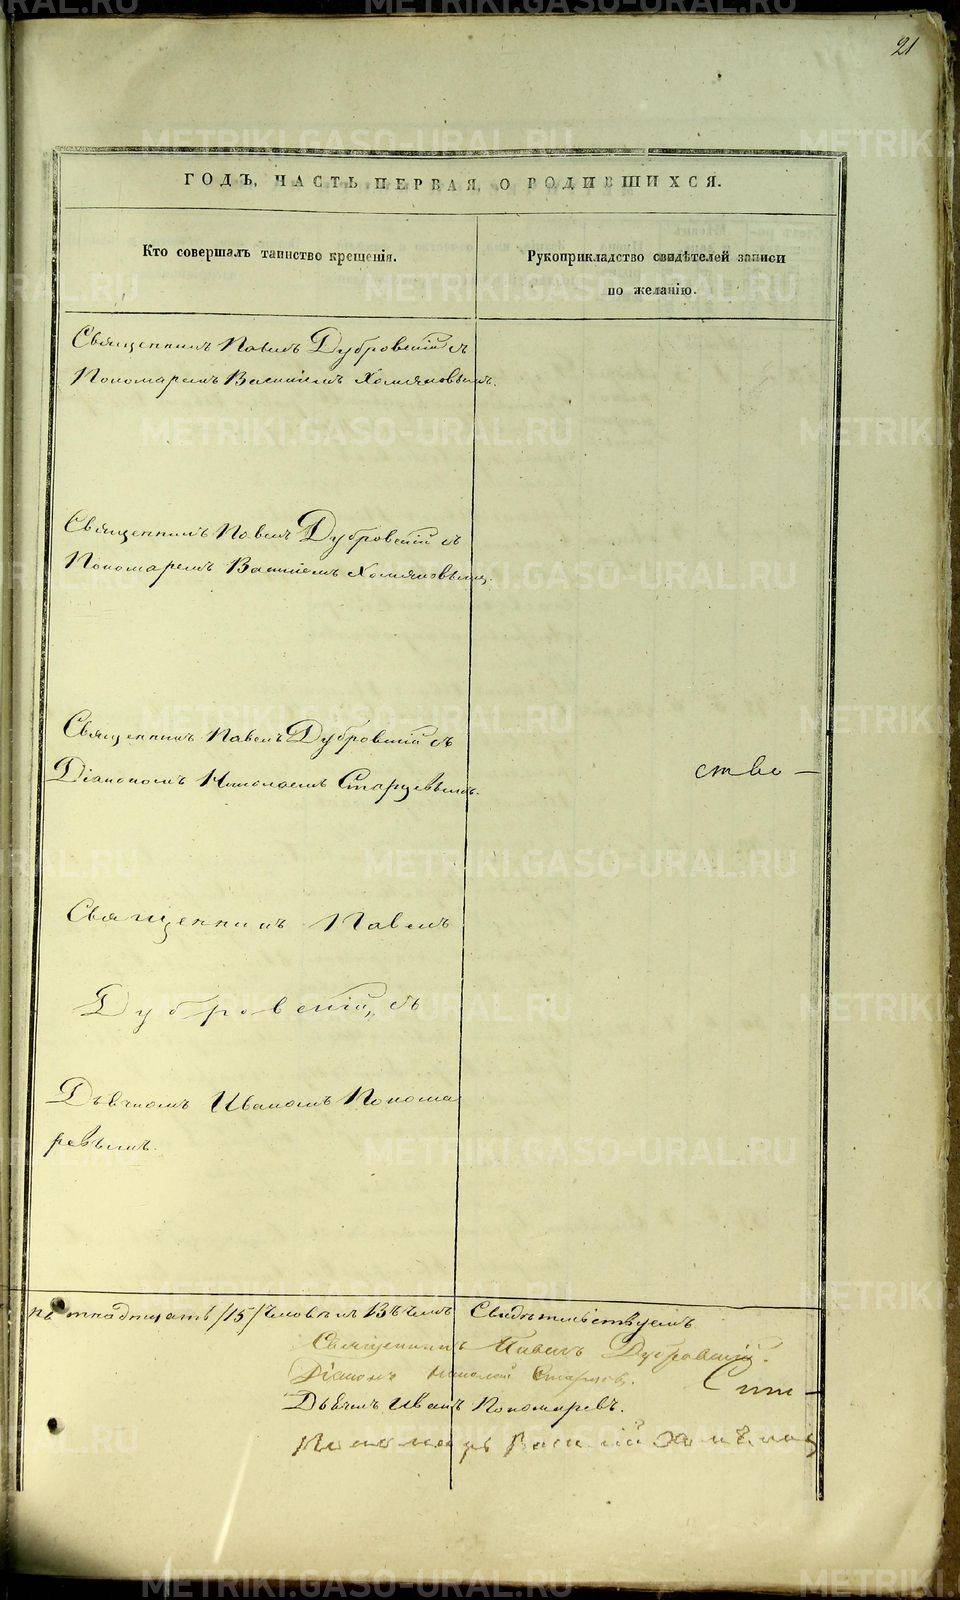 21
ГОДЪ, ЧАСТЬ ПЕРВАЯ, О РОДИВШИХСЯ.
Кто совершалъ таинство крещенія.
Рукоприкладство свидѣтелей записи
по желанію.
Священникъ Павелъ Дубровскій съ
Пономаремъ Василіемъ Хомяковымъ.
Священникъ Павелъ Дубровскій съ
Пономаремъ Василіемъ Хомяковымъ.
Священникъ Павелъ Дубровскій съ
Діакономъ Николаемъ Старцевымъ.
ство —
Священникъ Павелъ
Дубровскій, съ
Дьячкомъ Иваномъ Понома
ревымъ.
пятнадцать /15/ человѣкъ Въ чемъ Свидѣтельствуемъ
Священникъ Павелъ Дубровскій.
Діаконъ Николай Старцов.
Дьячекъ Иванъ Пономаревъ.
Пономарь Василий
METRIKI.GASO-URAL.RU